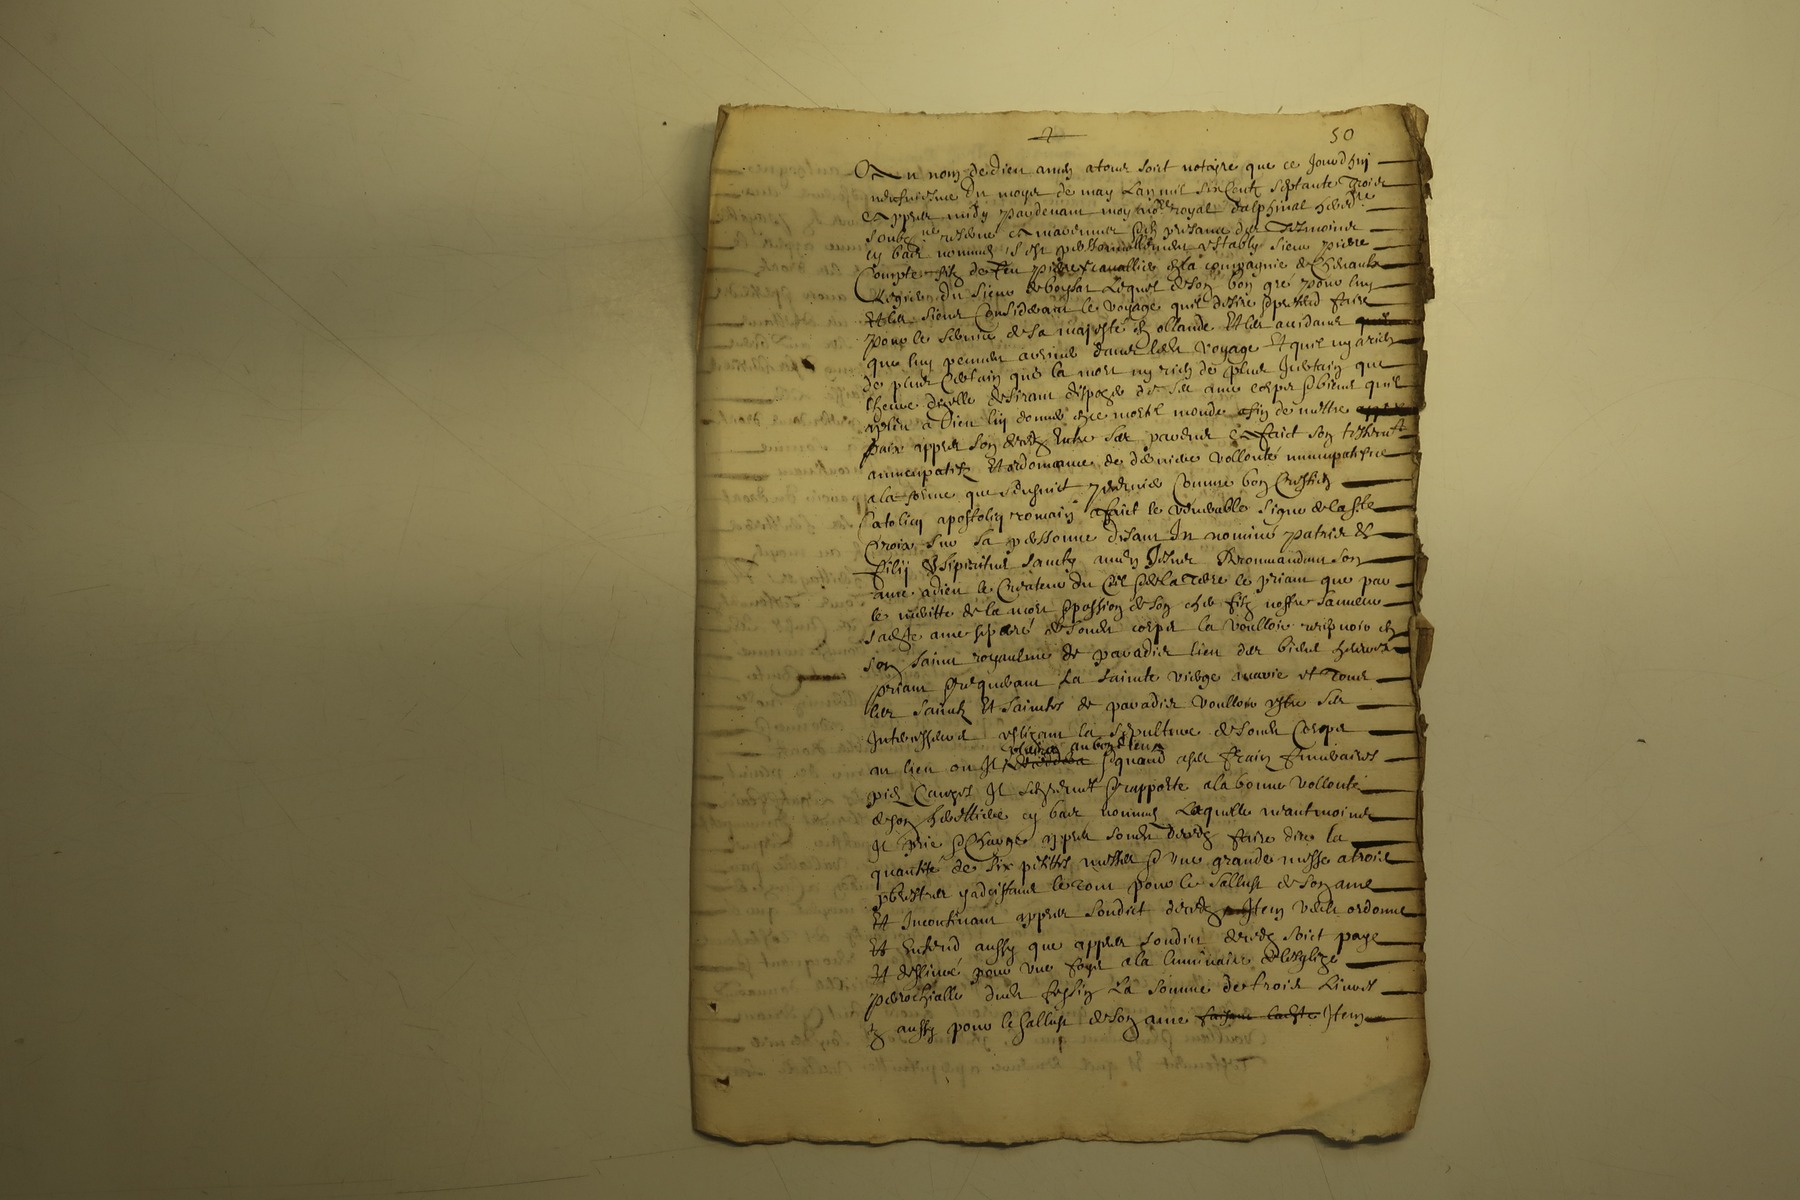 50
Au nom de Dieu amen a tous soict notoyre que ce Jourdhuy
neufviesme du moys de may Lan mil six Centz septante Trois
et appres midy pardevant moy no.re royal dalphinal
soubz.ne et presance des Tesmoings
cy bas nommes s est personnellement estably sieur piere
Compte filz de feu piere cavallier en la compagnie de
du sieur de Lequel de son bon gre pour luy
Et les siens Considerant le voyage quil desire et pretend faire
pour le service de sa majesté en ollande Et les accidans
que luy peuvent arriver dans led voyage Et quil ny a rien
de plus Certain que la mort ny rien de plus Incertain que
lheure dicelle desirant disposer de sa ame corps et biens quil
a pleu a Dieu luy donner en ce mortel monde afin de mettre
paix appres son deces Entre ses parens a faict son testem.t
nuncupatif Et ordonnance de derniere vollonté nuncupatifve
a la forme que sensuict premier Comme bon Crestien
Catolicq apostolicq romain a faict le venerable signe de la ste
Croix sur sa personne disant In nomine patris et
filij et spiritus sancty amen Recommandant son
ame a dieu le Createur du Ciel et de la Terre le priant que par
le meritte de la mort et passion de son cher filz nostre sauveur
sadite ame separé de sond corps la voulloir recepvoir en
son saint royaulme de paradis lieu des bien heureux
priant et requerant La sainte vierge marie et Tous
les saintz Et saintes de paradis voulloir estre ses
Intercesseurs eslizant la sepulture de sond Corps
au bon
au lieu ou Il et quand a ses fraix funeraires
pies Causes Il sen remet et rapporte a la bonne vollonté
de son herettiere cy bas nommee Laquelle neantmoins
Il prie et Charge appres sond deces faire dire la
quantité de six petittes messes et une grande messe a trois
prestres y adcistans le tout pour le sallust de son ame
Et Incontinant appres sondict deces Item veult ordonne
Et Entend aussy que appres sondict deces soict paye
Et deslivré pour une foys a la luminaire de lesglize
parochialle dud La somme de trois Livres
aussy pour le sallust de son ame Item